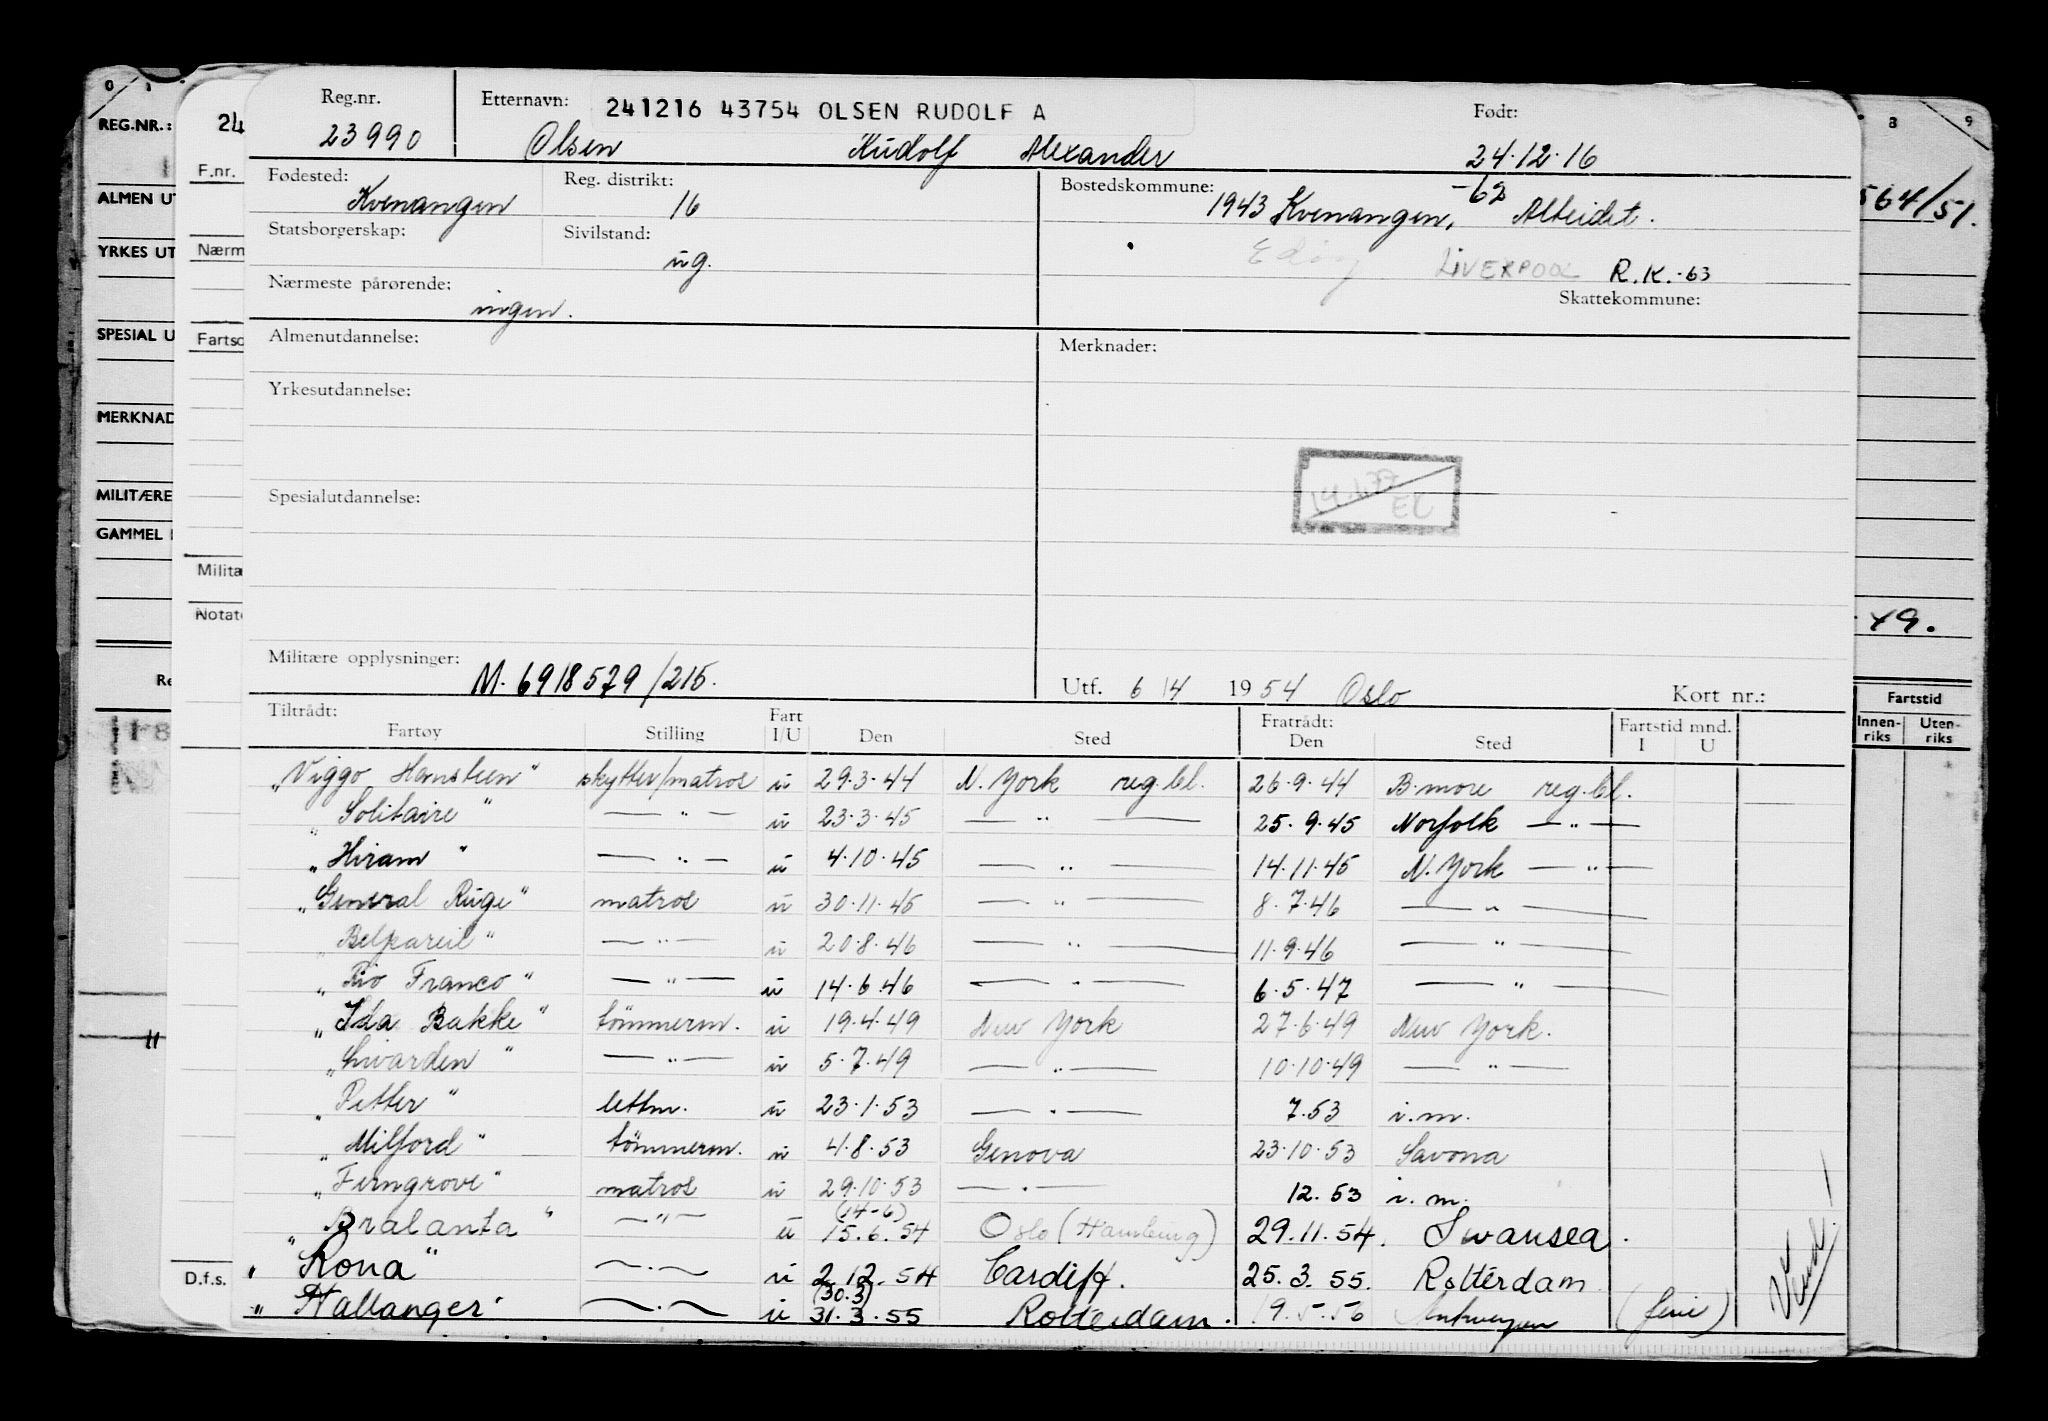 Reg.nr. Etternavn: 241216 43754 OLSEN RUDOLF A Født:
23990 Olsen Rudolf Alexander 24.12.16
Fødested: Kvenangen Reg. distrikt: 16 Bostedskommune: 1943 Kvenangen, -62 Alteidet.
Statsborgerskap: Sivilstand: ug. LIVERPOOL R.K.-63
Nærmeste pårørende: ingen. Skattekommune:
Almenutdannelse: Merknader:
Yrkesutdannelse:
Spesialutdannelse:
Militære opplysninger: M. 6918579/215. Utf. 6/4 1954 Oslo Kort nr.:
Tiltrådt: Fart Fratrådt: Fartstid mnd.
Fartøy Stilling I/U Den Sted Den Sted I U
"Viggo Hansteen" skytter/matros u 29.3.44 N. York reg.bl. 26.9.44 B.more reg.bl.
"Solitaire" — " — u 23.3.45 — " — 25.9.45 Norfolk — " —
"Hiram" — " — u 4.10.45 — " — 14.11.45 N. York — " —
"General Ruge" matros u 30.11.45 — " — 8.7.46 — " —
"Belpareil" — " — u 20.8.46 — " — 11.9.46 — " —
"Rio Franco" — " — u 14.6.46 — " — 6.5.47 — " —
"Ida Bakke" tømmerm. u 19.4.49 New York 27.6.49 New York.
"Livarden" — " — u 5.7.49 — " — 10.10.49 — " —
"Petter" lettm. u 23.1.53 — " — 7.53 i.m.
"Milford" tømmerm. u 4.8.53 Genova 23.10.53 Savona
"Ferngrove" matros u 29.10.53 — " — 12.53 i.m.
"Bralanta" — " — u (14-6) 15.6.54 Oslo (Hamburg) 29.11.54. Swansea.
"Rona" — " — u 2.12.54 Cardiff. 25.3.55. Rotterdam
"Hallanger" — " — u (30.3) 31.3.55 Rotterdam. 19.5.56 Antwerpen (ferie)
Vend!
0 1 8 9
REG.NR.: 24
F.nr.
ALMEN UT
564/51.
YRKES UT
Nærm
SPESIAL U
Fartsc
MERKNAD
MILITÆRE
GAMMEL
Militæ
Notat
49.
Re
Fartstid
Innen-riks Uten-riks
11
D.f.s.